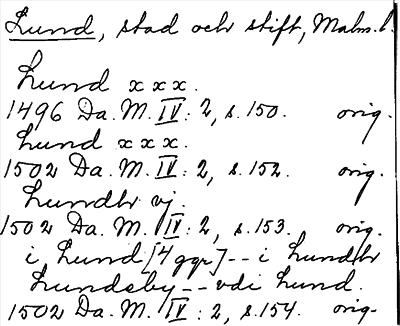 Lund, stad och stift, Malm. l.
Lund x x x.
1496 Da. M. IV: 2, s. 150. orig.
Lund x x x.
1502 Da. M. IV: 2, s. 152. orig.
Lundbr vj.
1502 Da. M. IV: 2, s. 153. orig.
i Lund [4 ggr] -- i Lundbr
Lundsby -- vdi Lund.
1502 Da. M. IV: 2, s. 154. orig.